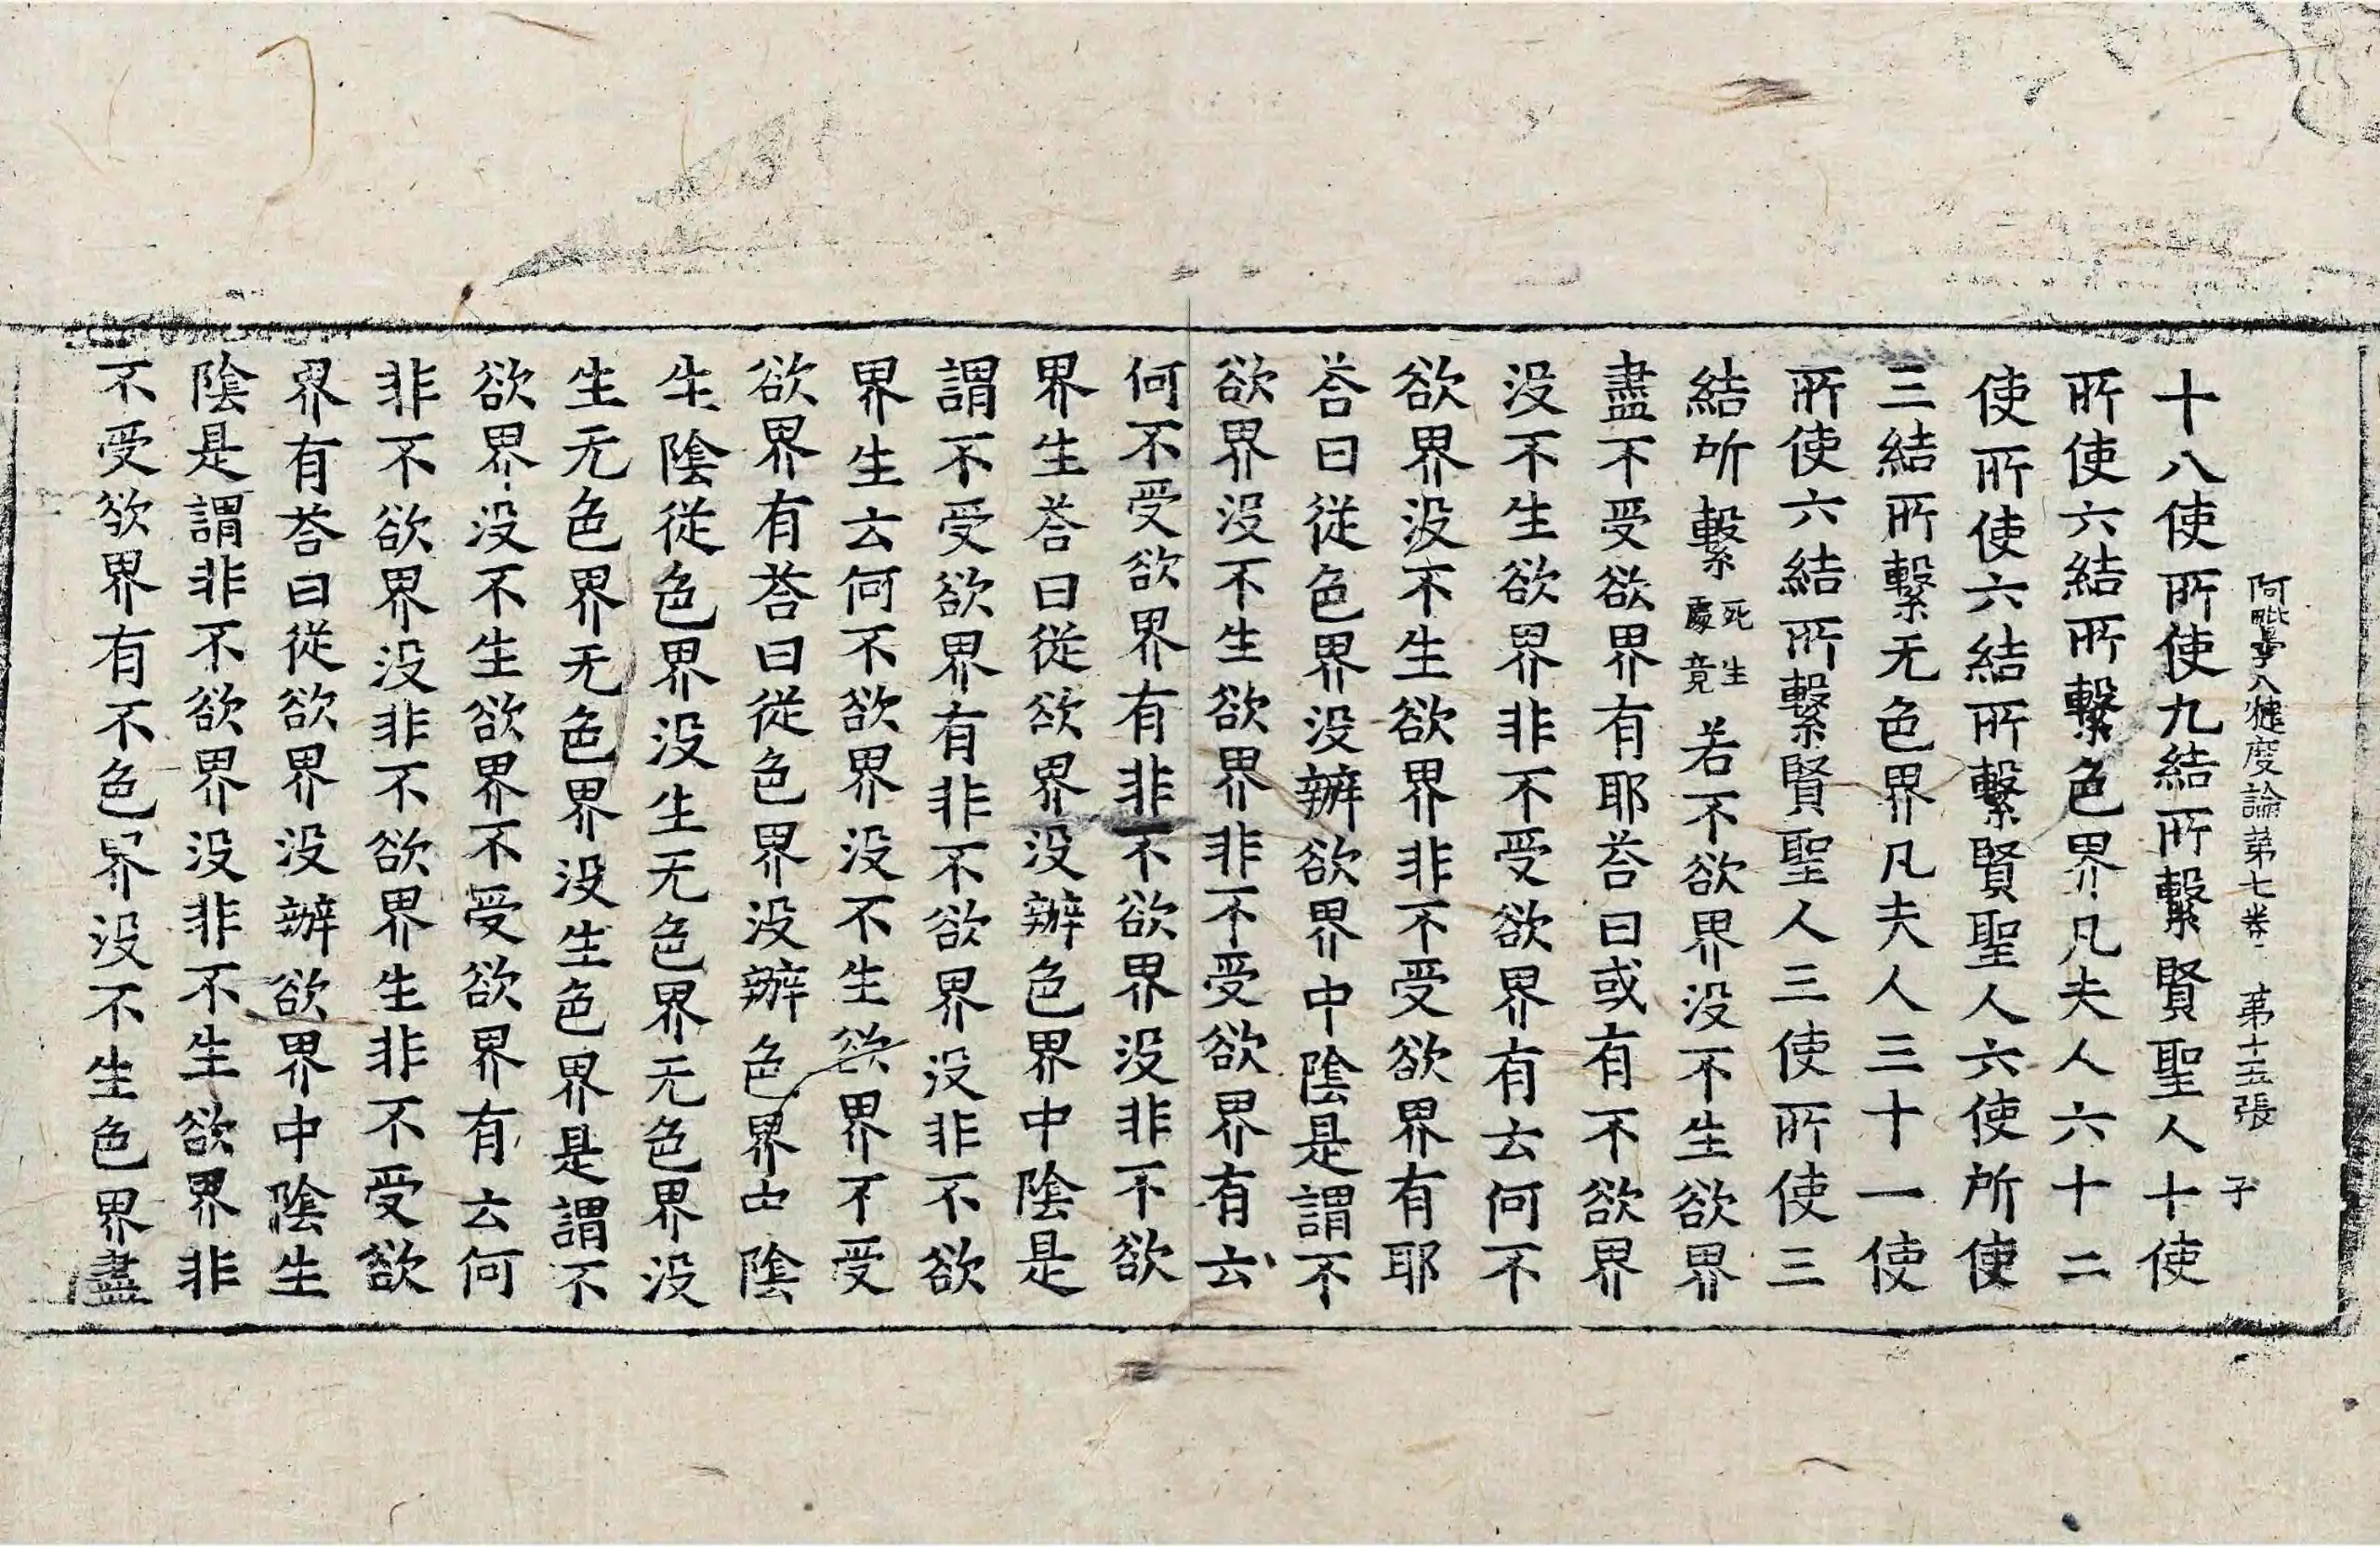 阿毗曇八犍度論第七卷 第十五張 子
十八使所使九結所繫賢聖人十使
所使六結所繫色界凡夫人六十二
使所使六結所繫賢聖人六使所使
三結所繫无色界凡夫人三十一使
所使六結所繫賢聖人三使所使三
結所繫死生處竟若不欲界没不生欲界
盡不受欲界有耶荅曰或有不欲界
没不生欲界非不受欲界有云何不
欲界没不生欲界非不受欲界有耶
荅曰從色界没辦欲界中陰是謂不
欲界没不生欲界非不受欲界有云
何不受欲界有非不欲界没非不欲
界生荅曰從欲界没辦色界中陰是
謂不受欲界有非不欲界没非不欲
界生云何不欲界没不生欲界不受
欲界有荅曰從色界没辦色界中陰
生陰從色界没生无色界无色界没
生无色界无色界没生色界是謂不
欲界没不生欲界不受欲界有云何
非不欲界没非不欲界生非不受欲
界有荅曰從欲界没辦欲界中陰生
陰是謂非不欲界没非不生欲界非
不受欲界有不色界没不生色界盡